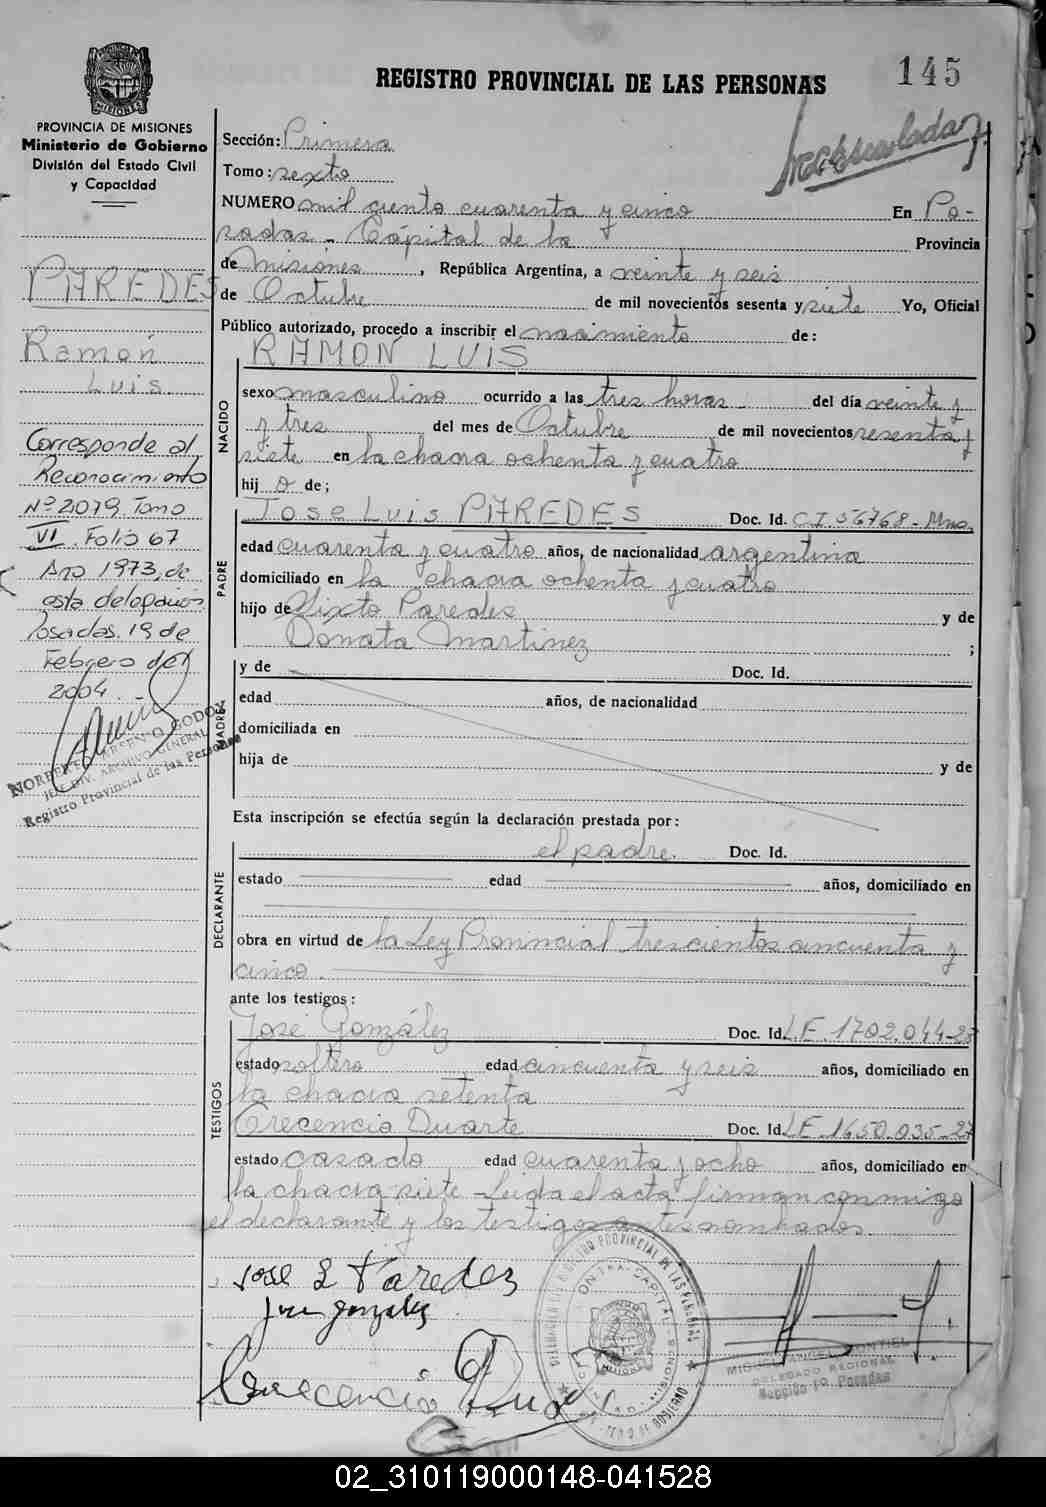 REGISTRO PROVINCIAL DE LAS PERSONAS
145
PROVINCIA DE MISIONES
Ministerio de Gobierno
División del Estado Civil
y Capacidad
Sección: Primera
Tomo: sexto
NUMERO mil ciento cuarenta y cinco En Po-
sadas - Cápital de la Provincia
de Misiones, República Argentina, a veinte y seis
de Octubre de mil novecientos sesenta y siete Yo, Oficial
Público autorizado, procedo a inscribir el nacimiento de:
RAMÓN LUIS
PAREDES
Ramón
Luis.
Corresponde al
Reconocimiento
Nº 2079 Tomo
VI. Folio 67
Año 1973, de
esta delegación
Posadas. 19 de
Febrero del
2004.
JEFE DIV. ARCHIVO GENERAL
Registro Provincial de las Personas
NACIDO
sexo masculino ocurrido a las tres horas - del día veinte y
y tres del mes de Octubre de mil novecientos sesenta y
siete en la chacra ochenta y cuatro
hij o de;
PADRE
Jose Luis PAREDES Doc. Id. C.I. 56768 - Mnes.
edad cuarenta y cuatro años, de nacionalidad argentina
domiciliado en la chacra ochenta y cuatro
hijo de Sixto Paredes y de
Donata Martinez ;
MADRE
y de Doc. Id.
edad años, de nacionalidad
domiciliada en
hija de y de
Esta inscripción se efectúa según la declaración prestada por:
DECLARANTE
el padre. Doc. Id.
estado edad años, domiciliado en
obra en virtud de la Ley Provincial trescientos cincuenta y
cinco.
ante los testigos:
TESTIGOS
José González Doc. Id. L.E. 1702.044-27
estado soltero edad cincuenta y seis años, domiciliado en
la chacra setenta
Crecencio Duarte Doc. Id. L.E. 1650.035-27
estado casado edad cuarenta y ocho años, domiciliado en
la chacra siete - Leida el acta firman conmigo
el declarante y los testigos antes nombrados.
Jose L Paredes
Jose gonzalez
DELEGADO REGIONAL
Sección 1ª Posadas
02_310119000148-041528